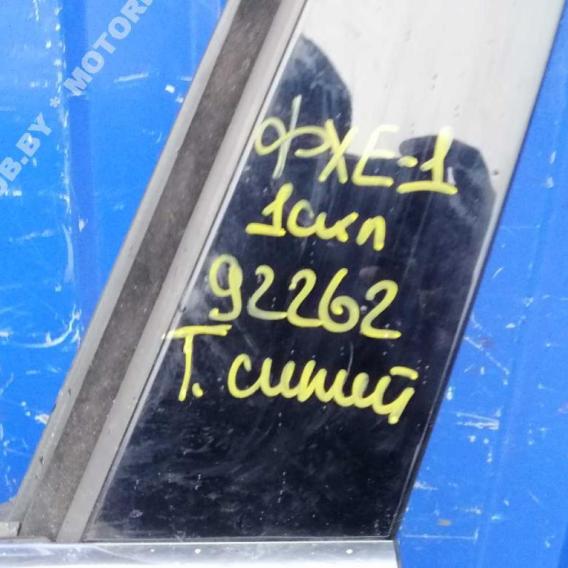 OB.BY * MOTOR
ФХЕ-1
1скл
92262
Т. синий